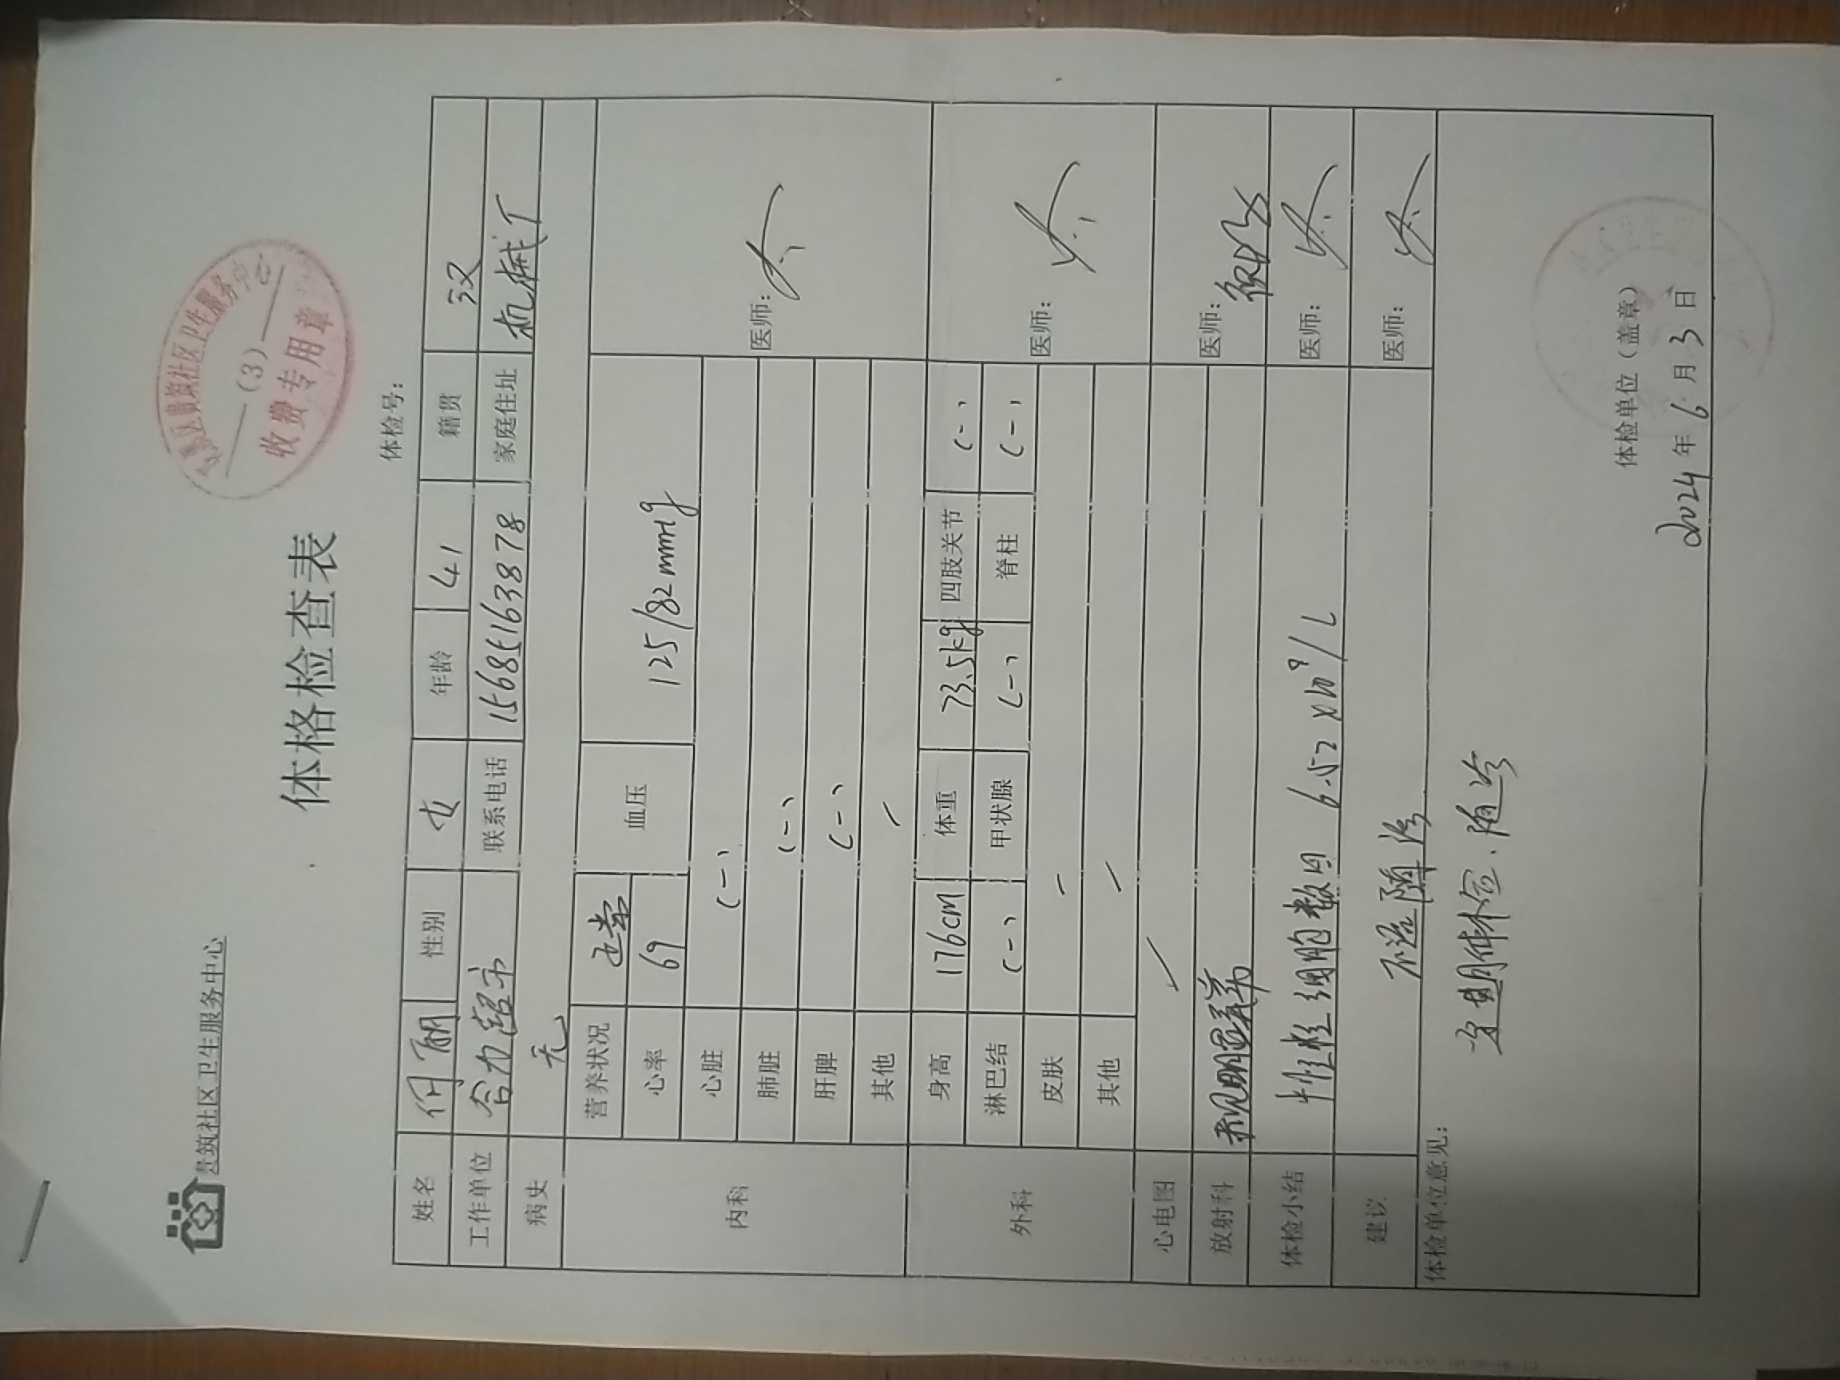 贵筑社区卫生服务中心
贵筑社区卫生服务中心
(3)
收费专用章
体格检查表
体检号:
姓名 何丽 性别 女 年龄 41 籍贯 汉
工作单位 合力超市 联系电话 15685163878 家庭住址 机械厂
病史 无
内科 营养状况 正常 血压 125/82mmHg 医师:
心率 69
心脏 (-)
肺脏 (-)
肝脾 (-)
其他 /
外科 身高 176cm 体重 73.5kg 四肢关节 (-) 医师:
淋巴结 (-) 甲状腺 (-) 脊柱 (-)
皮肤 /
其他 /
心电图 / 医师:
放射科 未见明显异常
体检小结 中性粒细胞数目 6.52×10^9/L 医师:
建议 不适随诊 医师:
体检单位意见:
定期体检、随诊
体检单位(盖章)
2024年6月3日